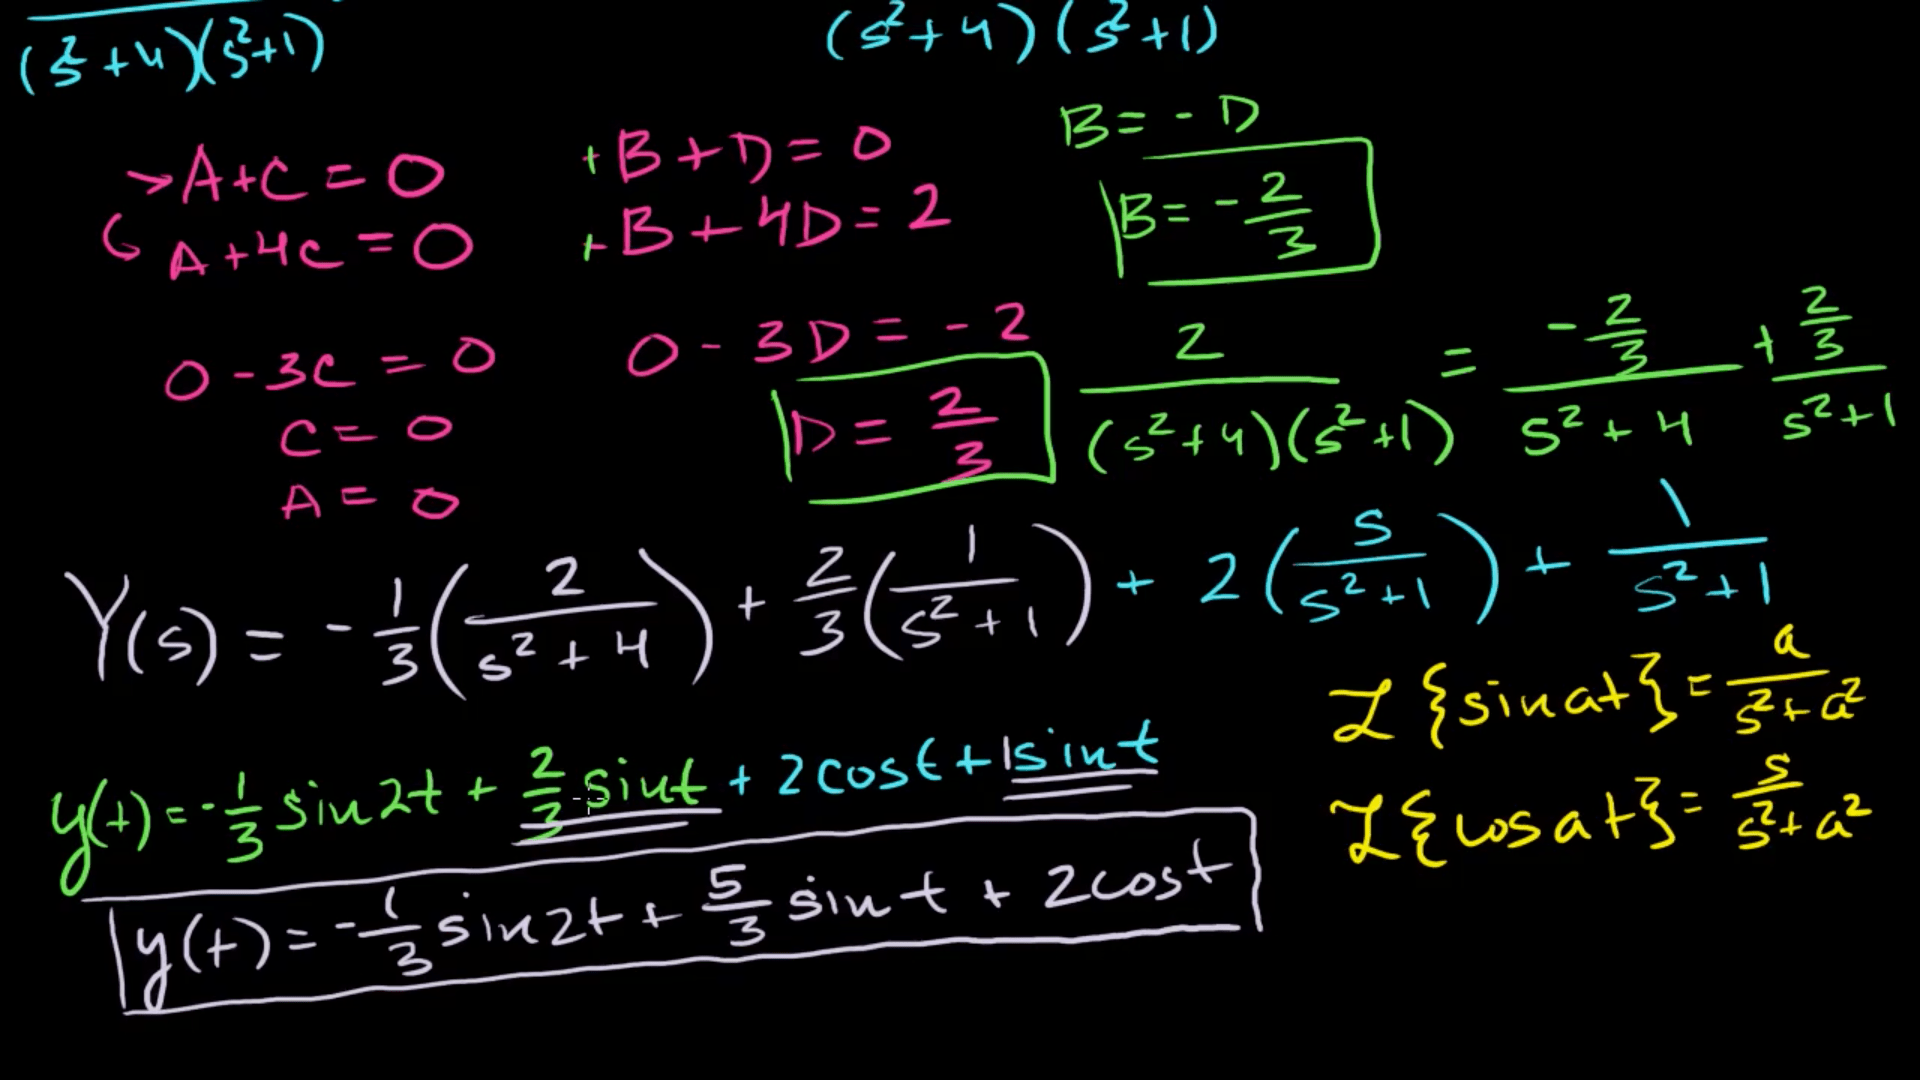 (s²+4)(s²+1)
(s²+4)(s²+1)
A+C = 0
A+4C = 0
+B+D = 0
+B+4D = 2
B = -D
B = -2/3
0 - 3C = 0
C = 0
A = 0
0 - 3D = -2
D = 2/3
2/((s²+4)(s²+1)) = (-2/3)/(s²+4) + (2/3)/(s²+1)
Y(s) = -1/3(2/(s²+4)) + 2/3(1/(s²+1)) + 2(s/(s²+1)) + 1/(s²+1)
ℒ{sin at} = a/(s²+a²)
ℒ{cos at} = s/(s²+a²)
y(t) = -1/3 sin2t + 2/3 sint + 2cost + 1sint
y(t) = -1/3 sin2t + 5/3 sint + 2cost